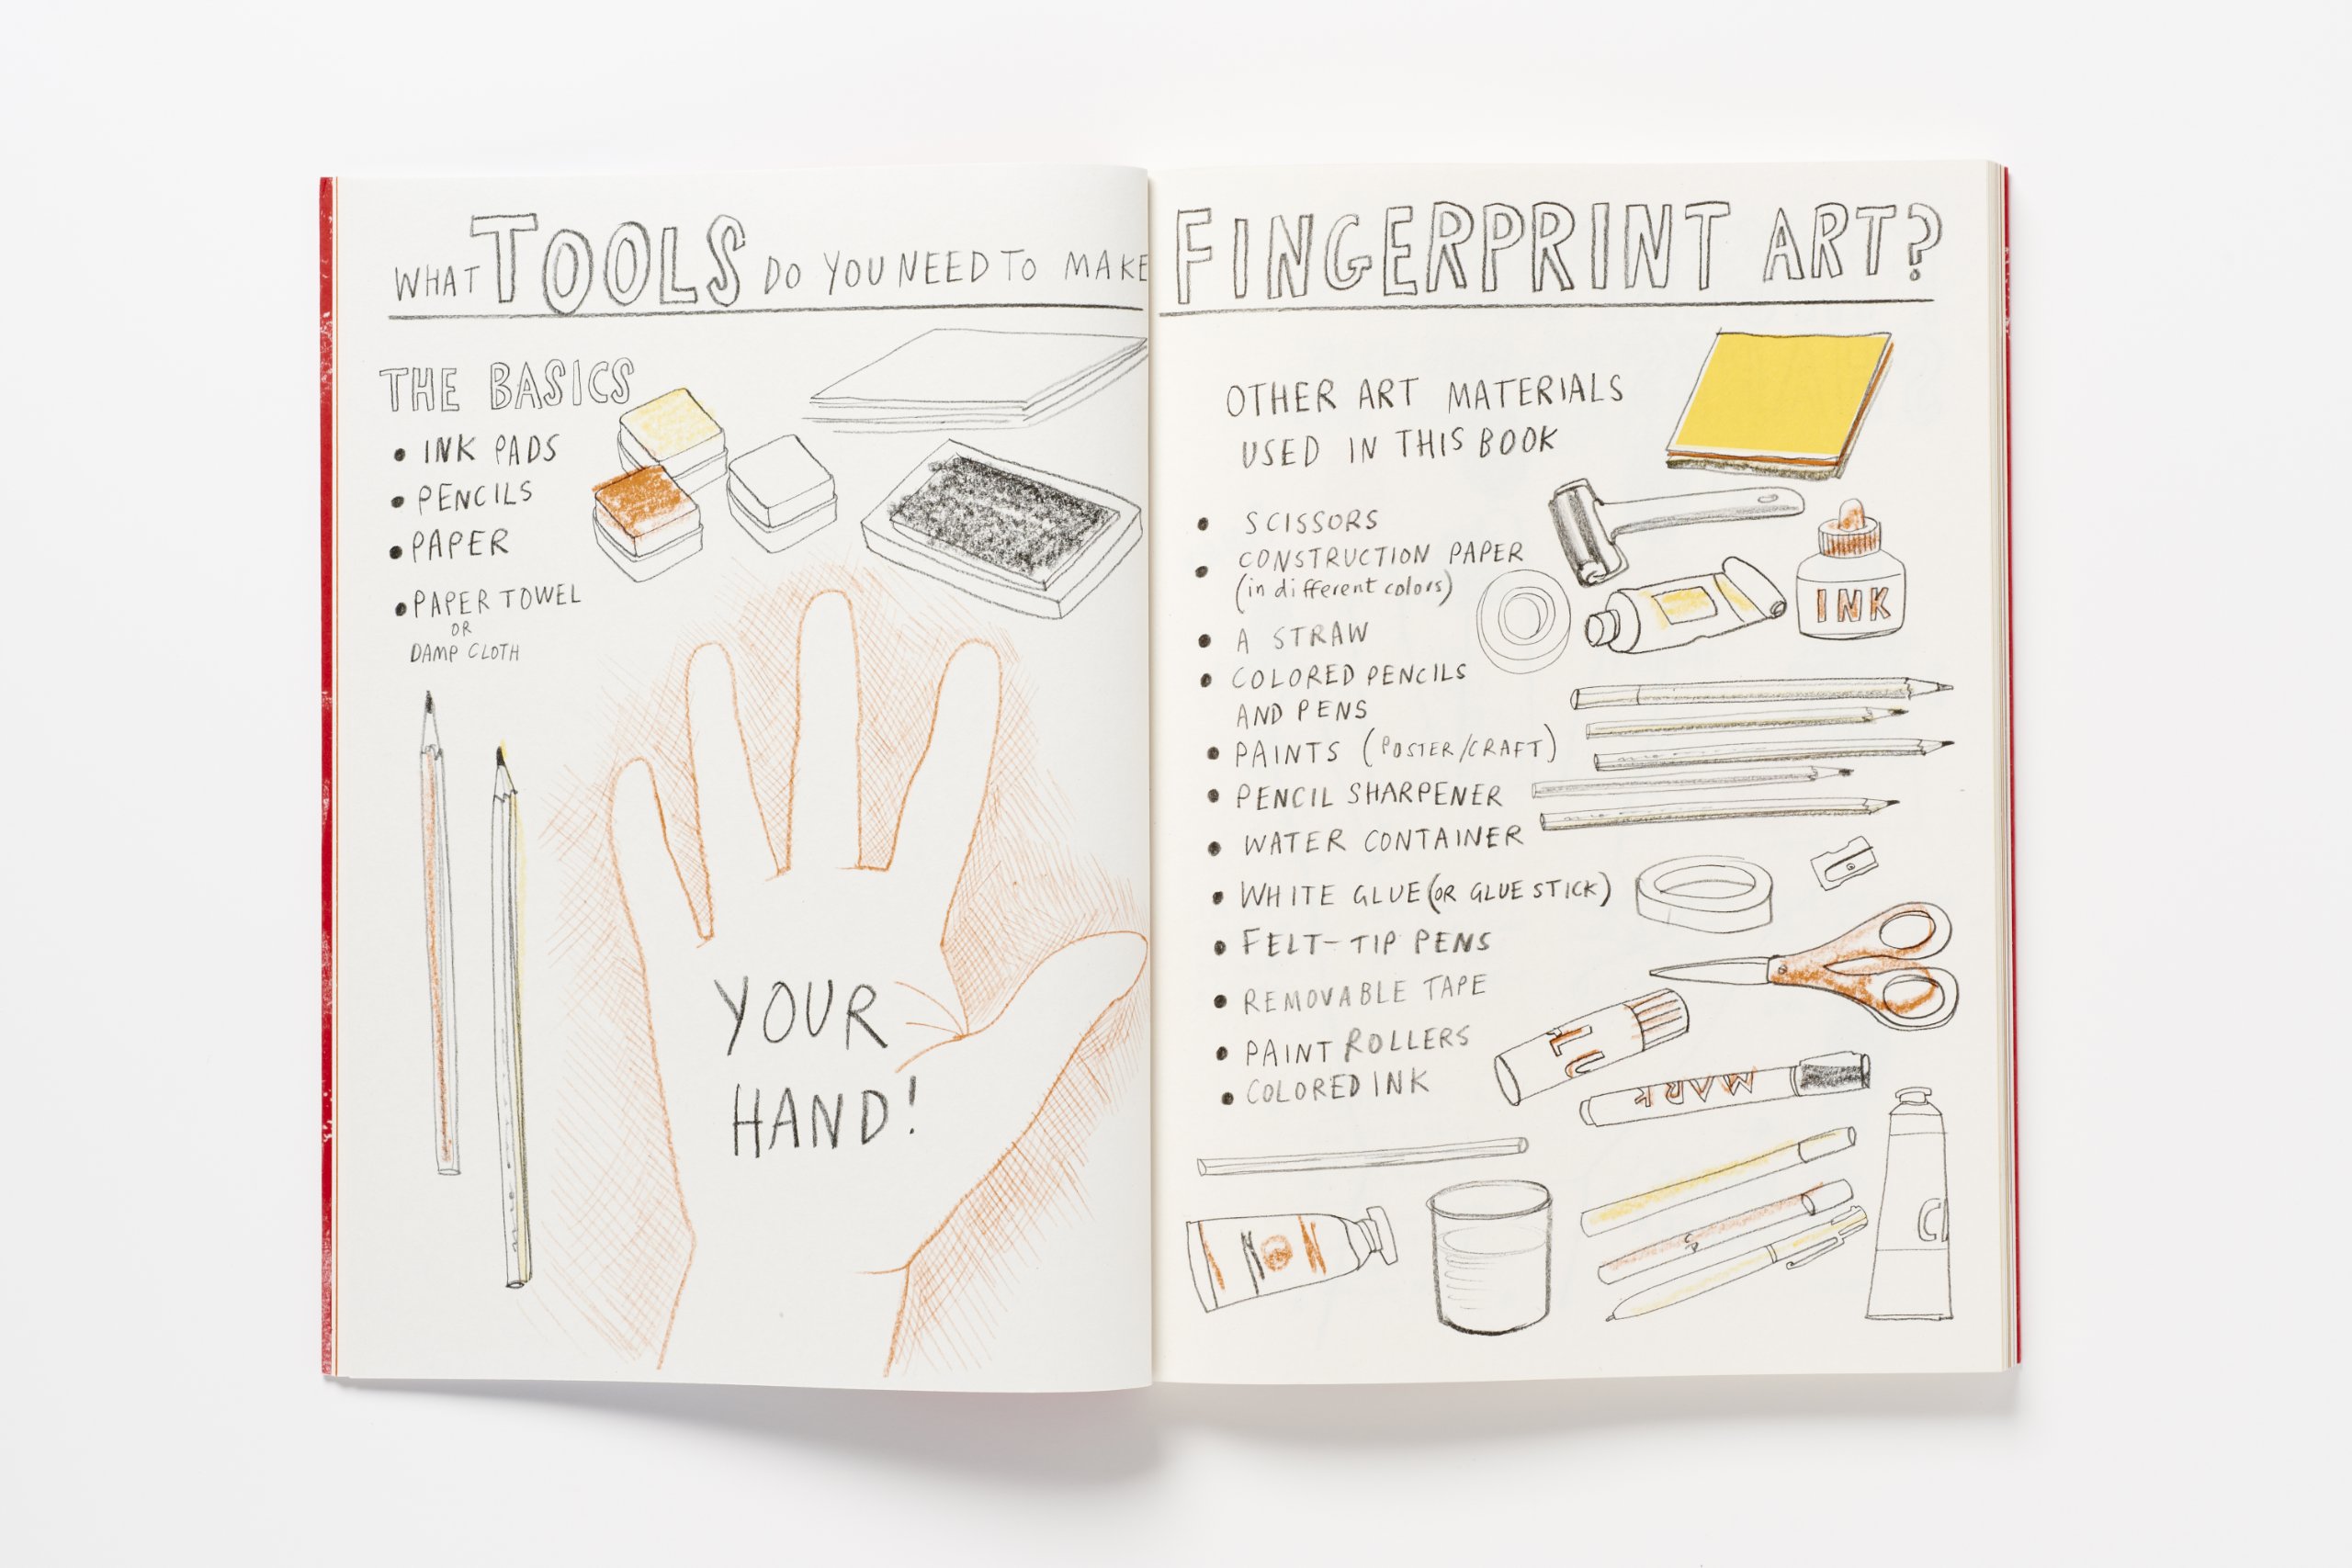 WHAT TOOLS DO YOU NEED TO MAKE FINGERPRINT ART?
THE BASICS
• INK PADS
• PENCILS
• PAPER
• PAPER TOWEL
OR
DAMP CLOTH
YOUR
HAND!
OTHER ART MATERIALS
USED IN THIS BOOK
• SCISSORS
• CONSTRUCTION PAPER
(in different colors)
• A STRAW
• COLORED PENCILS
AND PENS
• PAINTS (POSTER/CRAFT)
• PENCIL SHARPENER
• WATER CONTAINER
• WHITE GLUE (OR GLUE STICK)
• FELT-TIP PENS
• REMOVABLE TAPE
• PAINT ROLLERS
• COLORED INK
INK
MARK